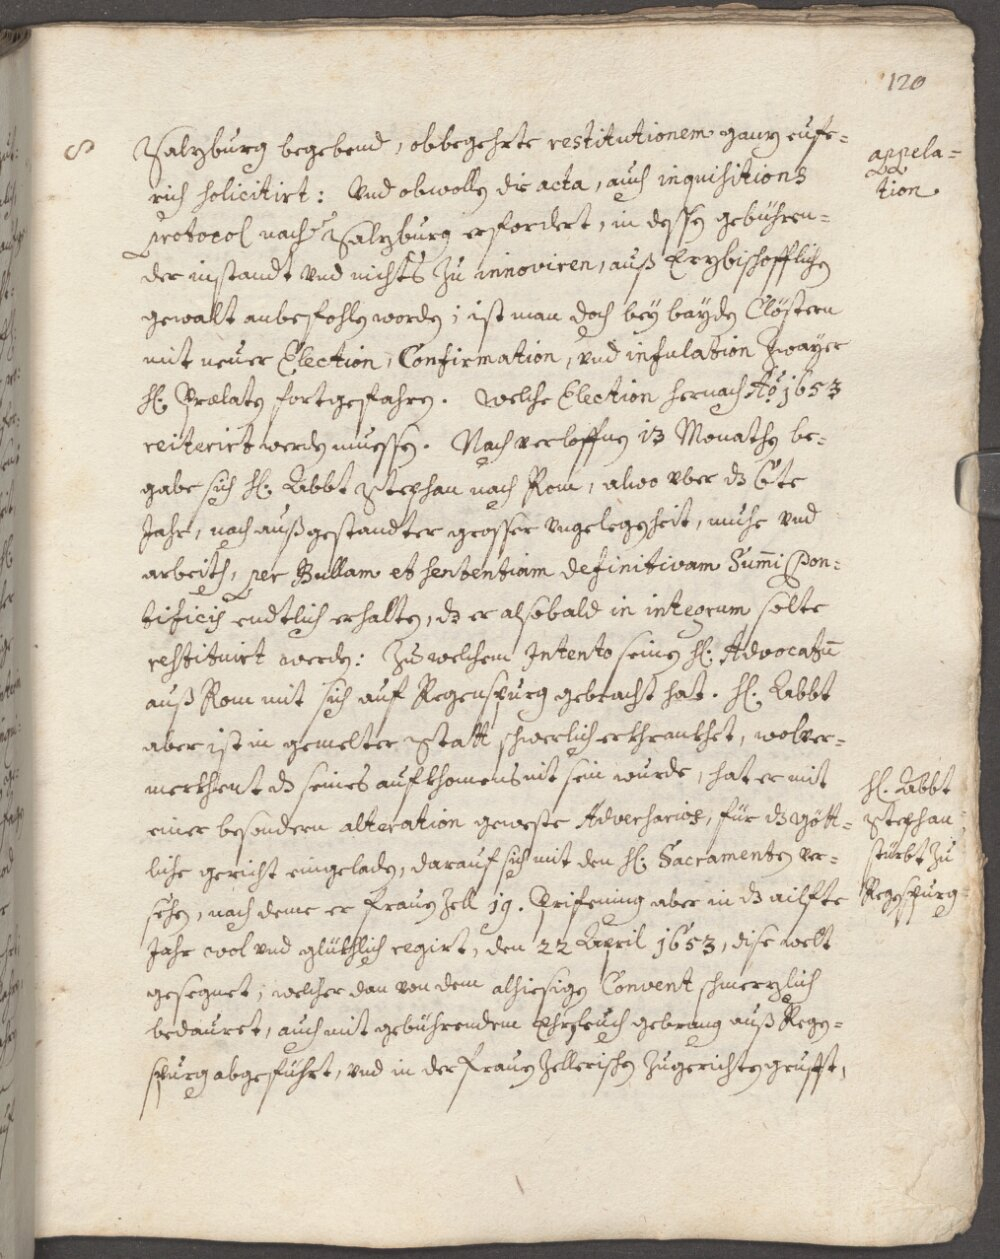 120
Salzburg begebend, obbegehrte restitutionem ganz eufe=
rich solicitirt: Vnd obwolln die acta, auch inquisitions
appela=
tion
protocol nach Salzburg erfordert, in dessen gebühren=
der instandt vnd nichts zu innoviren, auß Erzbischofflichen
gewalt anbefohlen worden; ist man doch bey bayden Clöstern
mit neuer Election, Confirmation, vnd infulation Zwayer
H: Prælaten fortgefahren. Welche Election hernach Aō 1653
reiterirt werden muessen. Nach verloffnen 13 Monathen be=
gabe sich H: Abbt Stephan nach Rom, alwo vber dz 6te
Jahr, nach außgestandter grosser vngelegenheit, muhe vnd
arbeith, per Bullam et sententiam definitivam Sum̄i Pon=
tificis endtlich erhalten, dz er alsobald in integrum solte
restituirt werden: Zu welchem Intento seinen H: Advocatū
auß Rom mit sich auf Regenspurg gebracht hat. H: Abbt
aber ist in gemelter Statt schwerlich erkhrankhet, wolver=
merkhent dz seines aufkhomens nit sein wurde, hat er mit
einer besondern alteration geweste Adversarios, für dz gött=
liche gericht eingeladen, darauf sich mit den H: Sacramenten ver=
sehen, nach deme er Frauen Zell 19. Prifening aber in dz ailfte
H: Abbt
Stephan
stürbt zu
Regenspurg
Jahr wol vnd glükhlich regirt, den 22 April 1653, dise welt
gesegnet; welcher dan von dem alhiesigen Convent schmerzlich
bedauret, auch mit gebührendem gebrang auß Regen=
spurg abgeführt, vnd in der Frauen Zellerischen Zugerichten grufft,